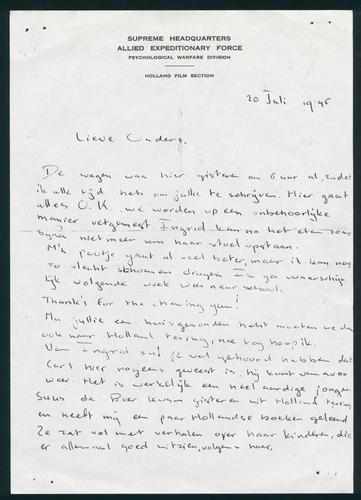 SUPREME HEADQUARTERS
ALLIED EXPEDITIONARY FORCE
PSYCHOLOGICAL WARFARE DIVISION
HOLLAND FILM SECTION
20 Juli 1945
Lieve Ouders,
De wagen was hier gisteren om 6 uur al, zodat
ik alle tijd heb om jullie te schrijven. Hier gaat
alles O.K., we worden op een onbehoorlijke
manier vetgemest. Ingrid kan na het eten soms
bijna niet meer van haar stoel opstaan.
M'n pootje gaat al veel beter, maar ik kan nog
zo slecht schoenen dragen. Ik ga waarschijn
lijk volgende week weer naar school.
Thanks for the chewing gum!
Nu jullie een huis gevonden hebt moeten we dan
ook naar Holland terug, nee toch hoop ik.
Van Ingrid zul je wel gehoord hebben dat
Carl hier nogeens geweest is. hij komt vanavond
weer. Het is werkelijk een heel aardige jongen.
Suus de Boer kwam gisteren uit Holland terug
en heeft mij een paar Hollandse boeken geleend
Ze zat vol met verhalen over haar kinderen, die
er allemaal goed uitzien, volgens haar.